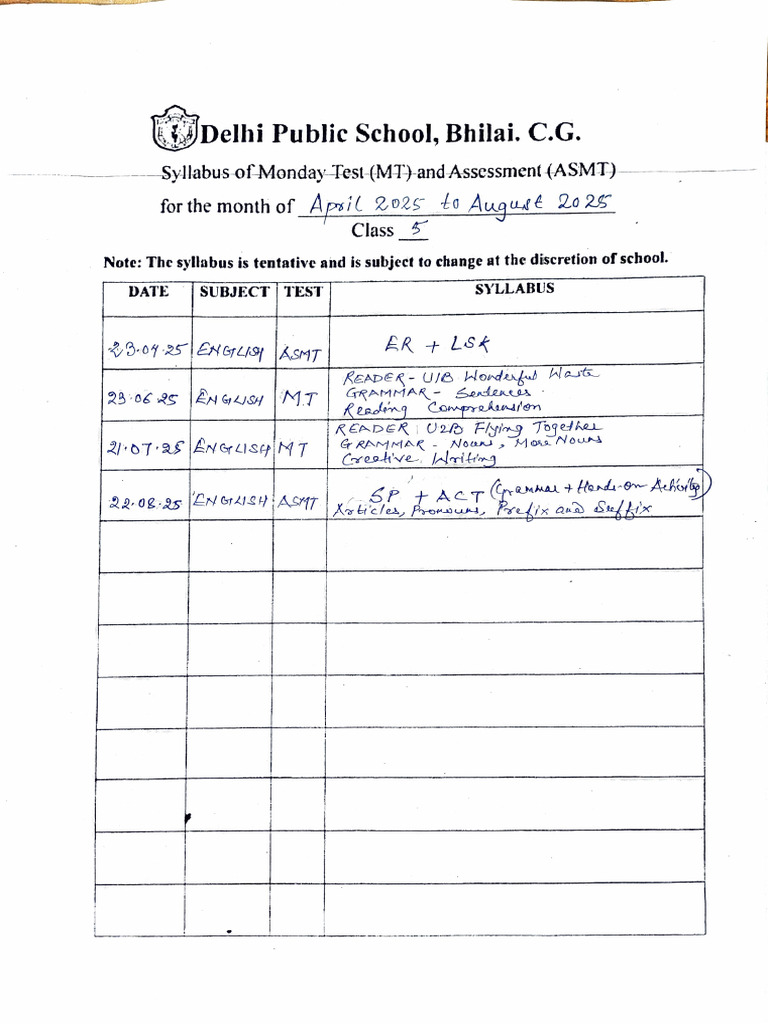 Delhi Public School, Bhilai. C.G.
Syllabus of Monday Test (MT) and Assessment (ASMT)
for the month of April 2025 to August 2025
Class 5
Note: The syllabus is tentative and is subject to change at the discretion of school.
DATE SUBJECT TEST SYLLABUS
23.04.25 ENGLISH ASMT ER + LSK
READER - U1B Wonderful Waste
23.06.25 ENGLISH MT GRAMMAR - Sentences.
Reading Comprehension
READER : U2B Flying Together
21.07.25 ENGLISH MT GRAMMAR - Nouns, More Nouns
Creative Writing
22.08.25 ENGLISH ASMT SP + ACT (Grammar + Hands-on Activity)
Articles, Pronouns, Prefix and Suffix